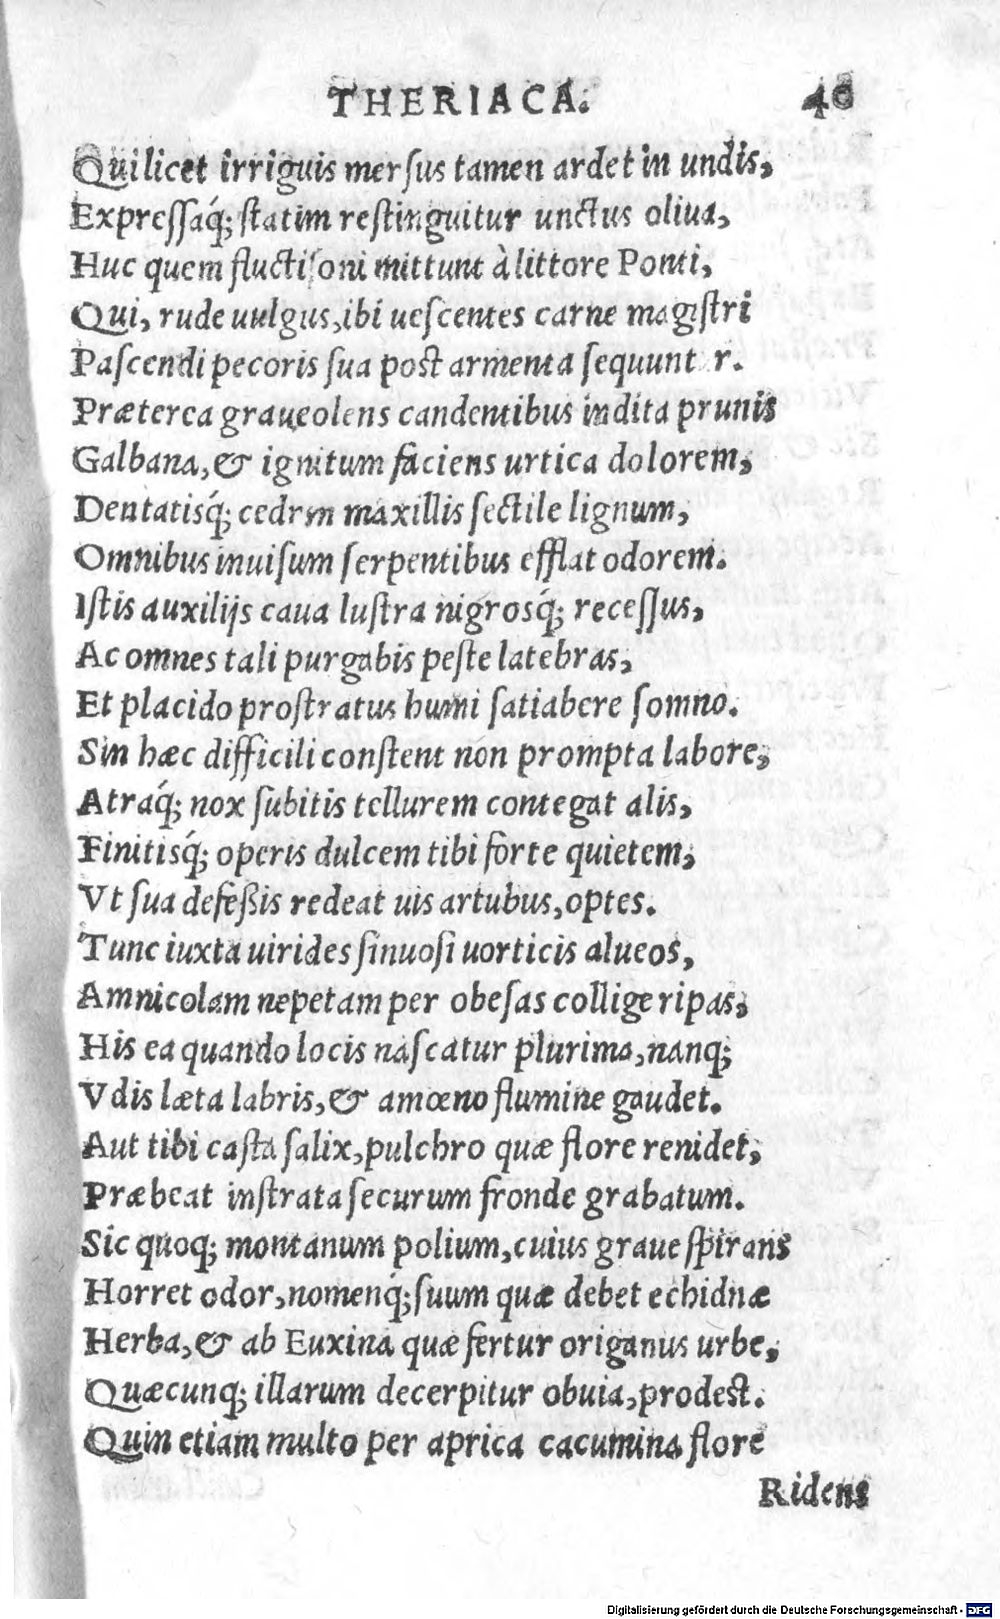 THERIACA. 40
Qui licet irriguis mersus tamen ardet in undis,
Expressaq́; statim restinguitur unctus oliua,
Huc quem fluctisoni mittunt à littore Ponti,
Qui, rude uulgus, ibi uescentes carne magistri
Pascendi pecoris sua post armenta sequunt r.
Præterea graueolens candentibus indita prunis
Galbana, & ignitum faciens urtica dolorem,
Dentatisq́; cedrm maxillis sectile lignum,
Omnibus inuisum serpentibus efflat odorem.
Istis auxilijs caua lustra nigrosq́; recessus,
Ac omnes tali purgabis peste latebras,
Et placido prostratus humi satiabere somno.
Sin hæc difficili constent non prompta labore,
Atraq́; nox subitis tellurem contegat alis,
Finitisq́; operis dulcem tibi forte quietem,
Vt sua defeßis redeat uis artubus, optes.
Tunc iuxta uirides sinuosi uorticis alueos,
Amnicolam nepetam per obesas collige ripas,
His ea quando locis nascatur plurima, nanq;
Vdis læta labris, & amœno flumine gaudet.
Aut tibi casta salix, pulchro quæ flore renidet,
Præbeat instrata securum fronde grabatum.
Sic quoq; montanum polium, cuius graue spirans
Horret odor, nomenq́; suum quæ debet echidnæ
Herba, & ab Euxina quæ fertur origanus urbe,
Quæcunq; illarum decerpitur obuia, prodest.
Quin etiam multo per aprica cacumina flore
Ridens
Digitalisierung gefördert durch die Deutsche Forschungsgemeinschaft - DFG